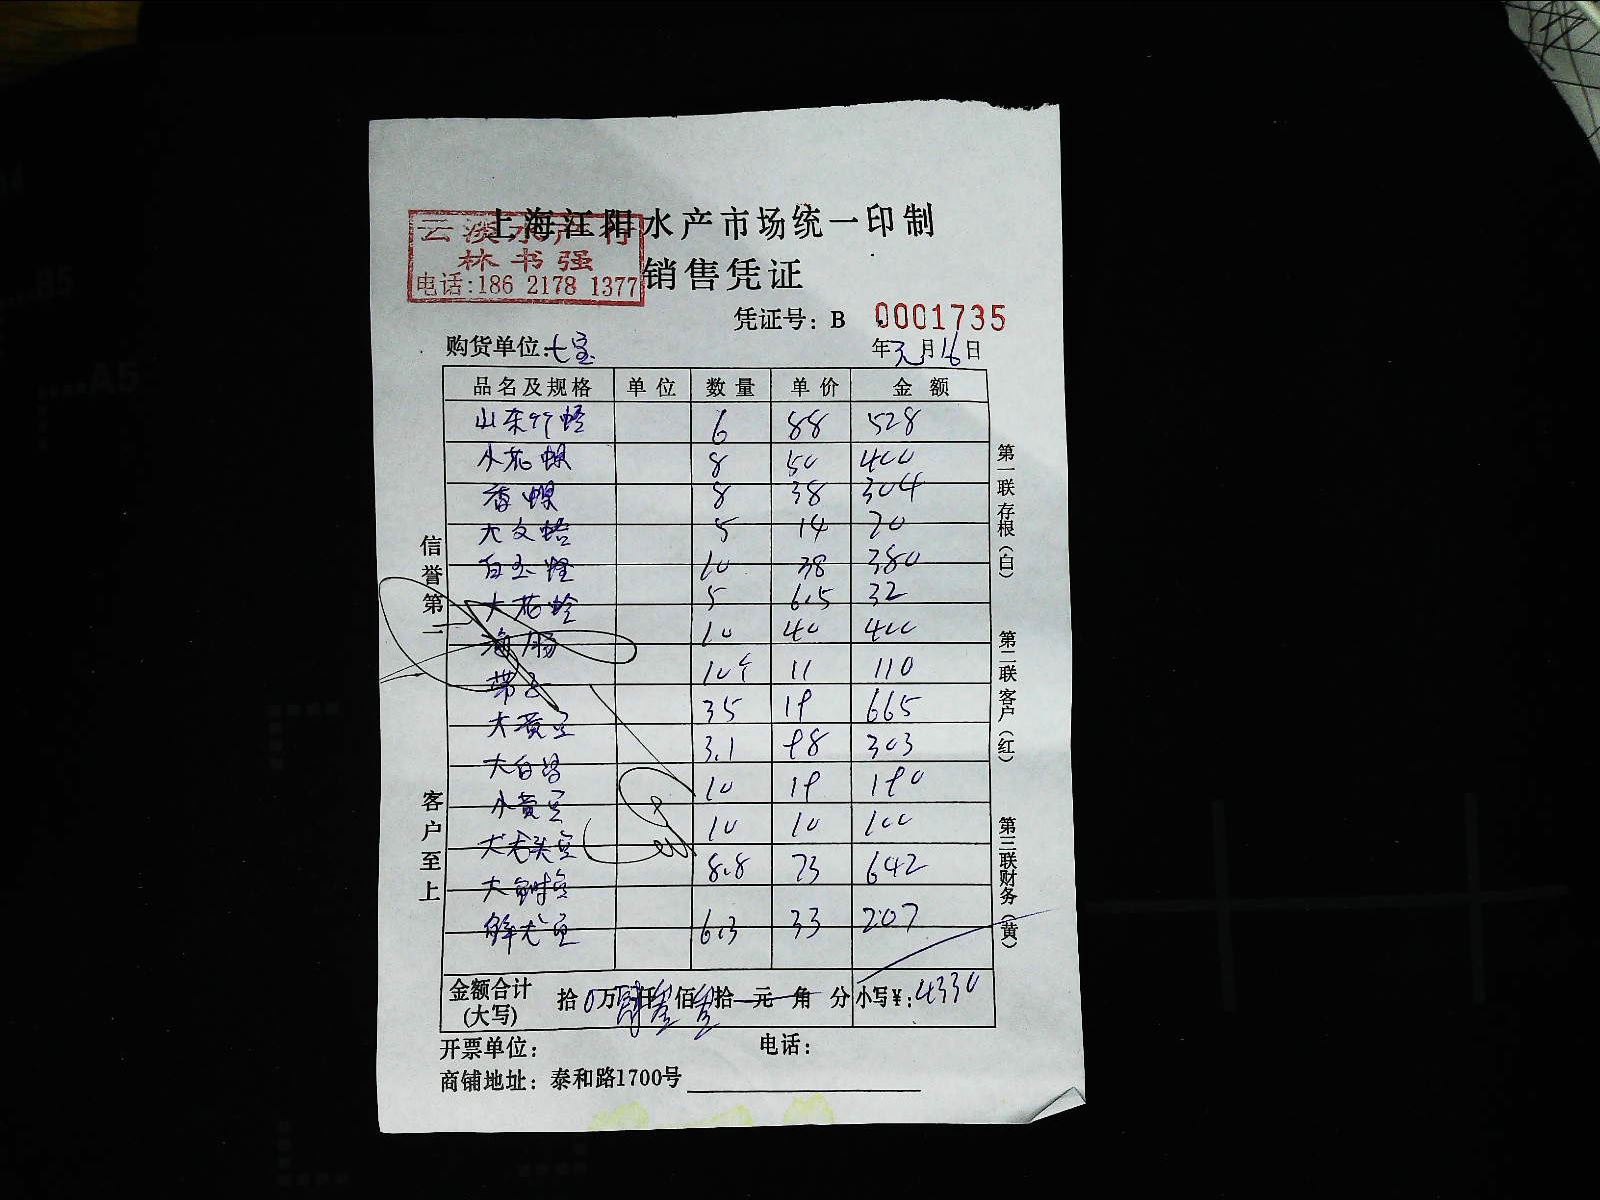 上海江阳水产市场统一印制
云淡水产行
林书强
电话:186 2178 1377
销售凭证
凭证号: B 0001735
购货单位:七宝
年 元月16日
品名及规格 单位 数量 单价 金额
山东 6 88 528
小花螺 8 50 400
香螺 8 38 304
大文蛤 5 14 70
白玉蛏 10 38 380
大花蛤 5 6.5 32
海肠 10 40 400
带子 10个 11 110
大黄 35 19 665
大白 3.1 98 303
小黄 10 19 190
大 10 10 100
大 8.8 73 642
6.3 33 207
金额合计
(大写)
拾0万肆仟叁佰叁拾元角分 小写¥:4330
开票单位: 电话:
商铺地址: 泰和路1700号
信誉第一
客户至上
第一联存根(白)
第二联客户(红)
第三联财务(黄)